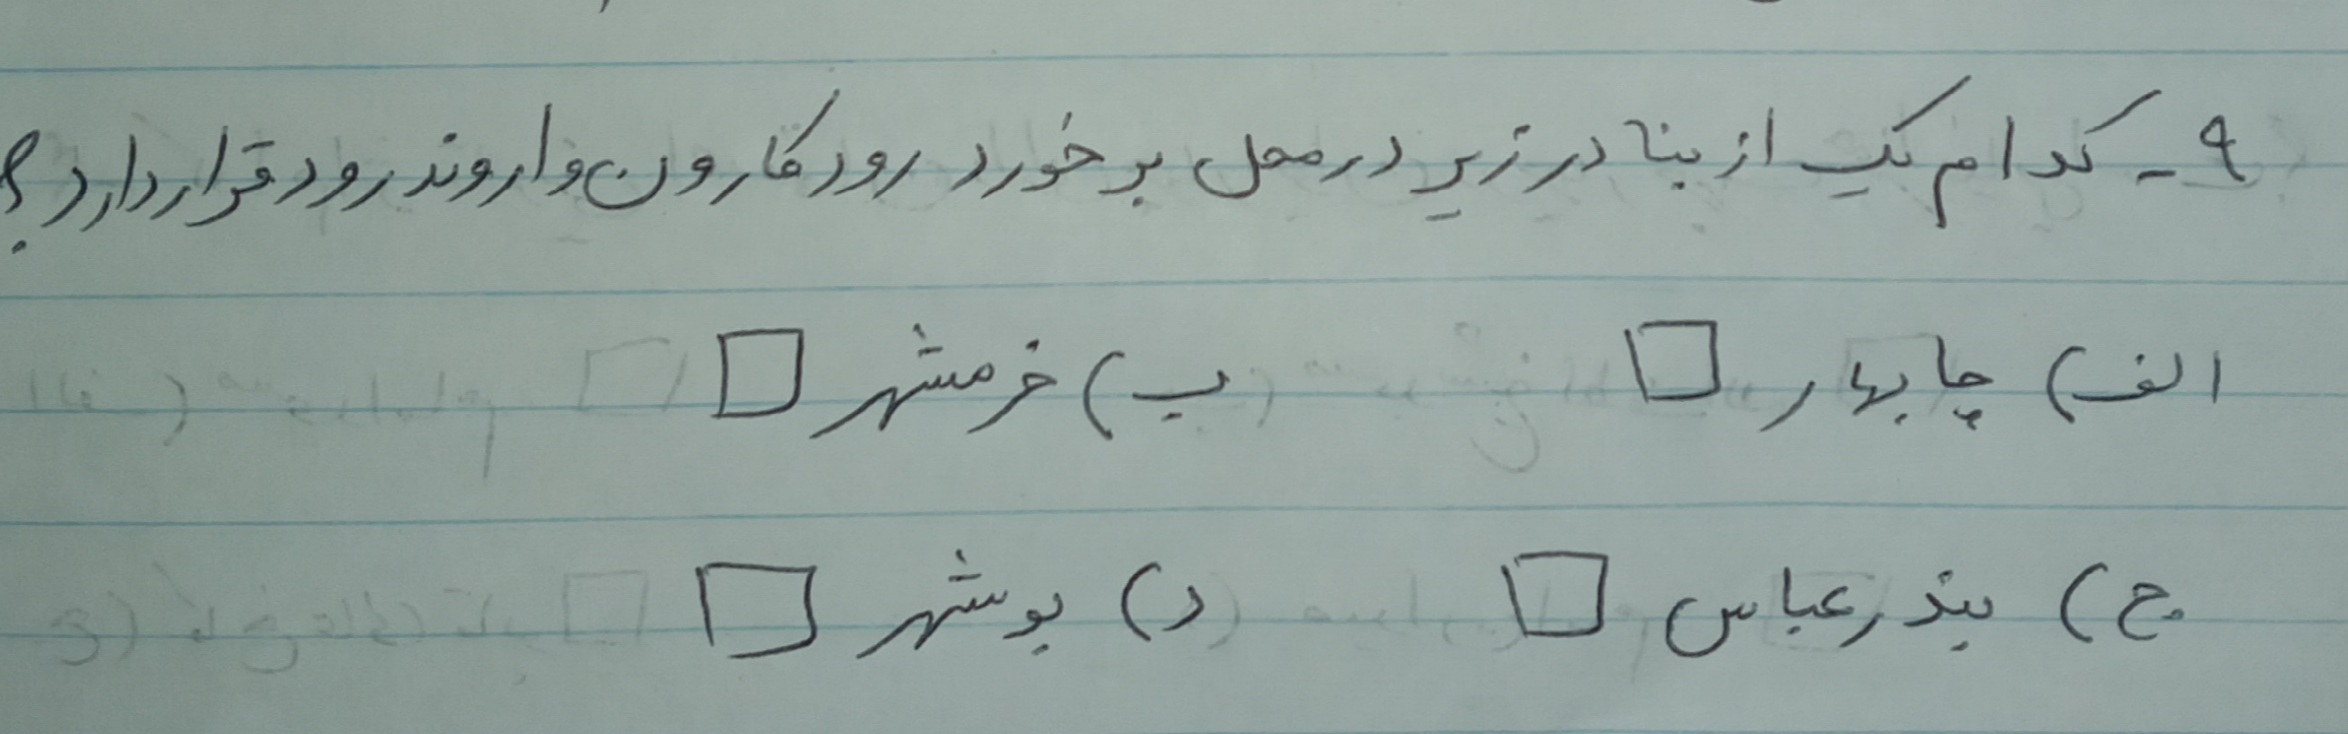 ۹- کدام یک از بنادر زیر در محل برخورد رود کارون و اروند رود قرار دارد؟
الف) چابهار □ ب) خرمشهر □
ج) بندرعباس □ د) بوشهر □